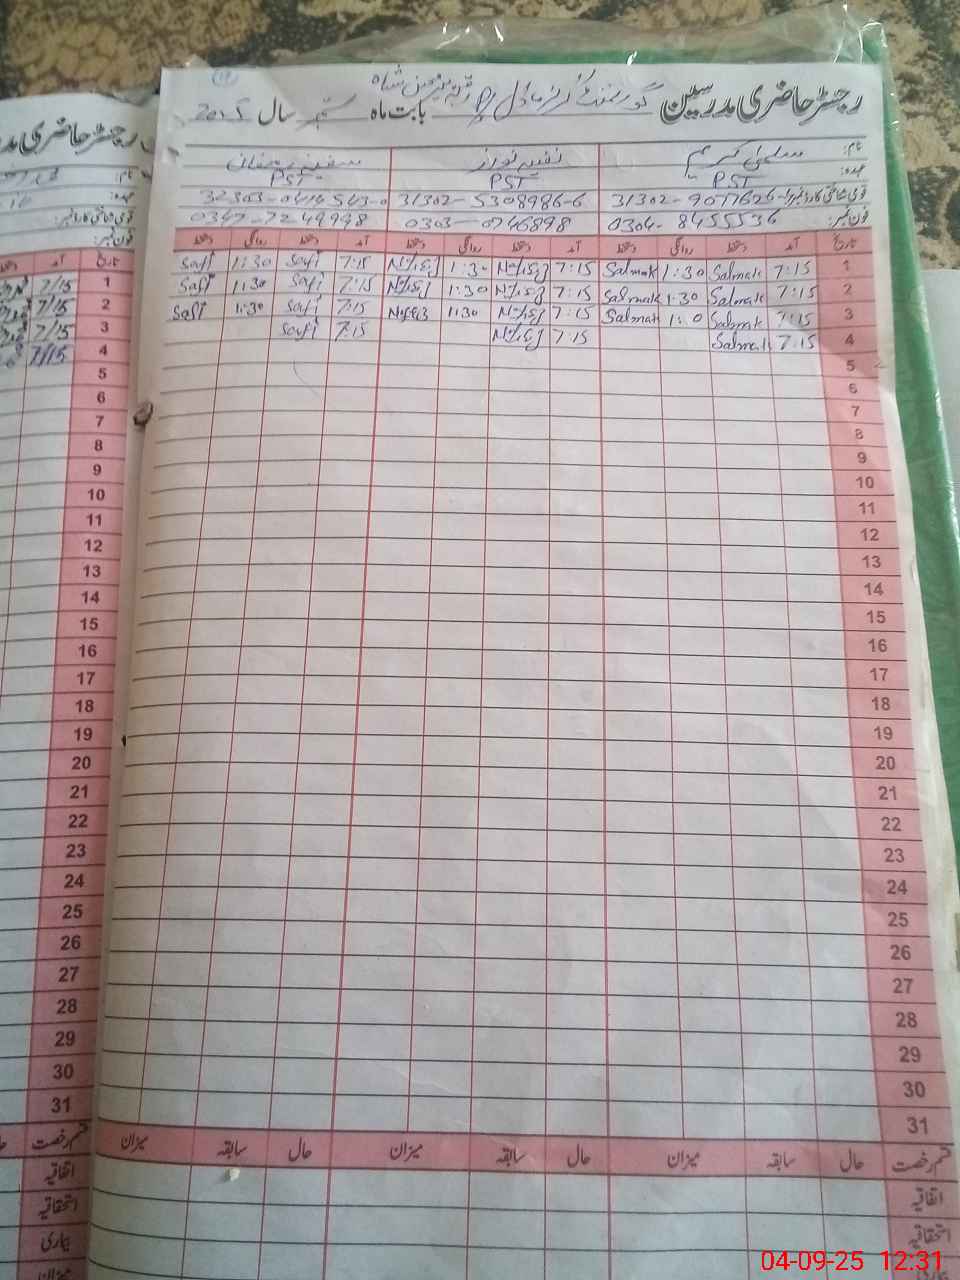 رجسٹر حاضری مدرسین گورنمنٹ گرلز ماڈل بابت ماہ ستمبر سال 2025
نام: سلمیٰ کریم نفیسہ نواز سفینہ رمضان
عہدہ: PST PST PST
قومی شناختی کارڈ نمبر: 31302-9077626- 31302-5308986-6 32303-0414543-0
فون نمبر: 0304-8455536 0303-0746898 0347-7249998
تاریخ آمد دستخط روانگی دستخط آمد دستخط روانگی دستخط آمد دستخط روانگی دستخط
1 7:15 Salmak 1:30 Salmak 7:15 1:30 7:15 Safi 1:30 Safi
2 7:15 Salmak 1:30 Salmak 7:15 1:30 7:15 Safi 1:30 Safi
3 7:15 Salmak 1:30 Salmak 7:15 1:30 7:15 Safi 1:30 Safi
4 7:15 Salmak 7:15 7:15 Safi
5
6
7
8
9
10
11
12
13
14
15
16
17
18
19
20
21
22
23
24
25
26
27
28
29
30
31
قسم رخصت حال سابقہ میزان حال سابقہ میزان حال سابقہ میزان
اتفاقیہ
استحقاقیہ
رجسٹر حاضری مدر
نام:
عہدہ:
قومی شناختی کارڈ نمبر:
فون نمبر:
تاریخ آمد دستخط
1 7/15
2 7/15
3 7/15
4 7/15
5
6
7
8
9
10
11
12
13
14
15
16
17
18
19
20
21
22
23
24
25
26
27
28
29
30
31
قسم رخصت
اتفاقیہ
استحقاقیہ
بیماری
میزان
04-09-25 12:31